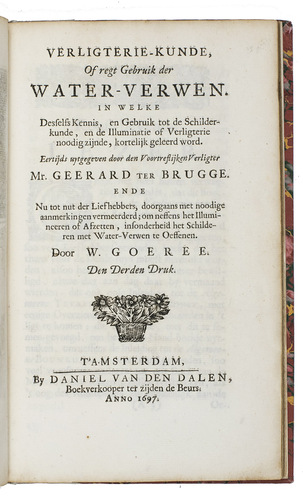 VERLIGTERIE-KUNDE,
Of regt Gebruik der
WATER-VERWEN.
IN WELKE
Desselfs Kennis, en Gebruik tot de Schilder-
kunde, en de Illuminatie of Verligterie
noodig zijnde, kortelijk geleerd word.
Eertijds uytgegeven door den Voortreflijken Verligter
Mr. GEERARD TER BRUGGE.
ENDE
Nu tot nut der Liefhebbers, doorgaans met noodige
aanmerkingen vermeerderd; om neffens het Illumi-
neeren of Afzetten, insonderheid het Schilde-
ren met Water-Verwen te Oeffenen.
Door W. GOEREE.
Den Derden Druk.
T'AMSTERDAM,
By DANIEL VAN DEN DALEN,
Boekverkooper ter zijden de Beurs.
ANNO 1697.